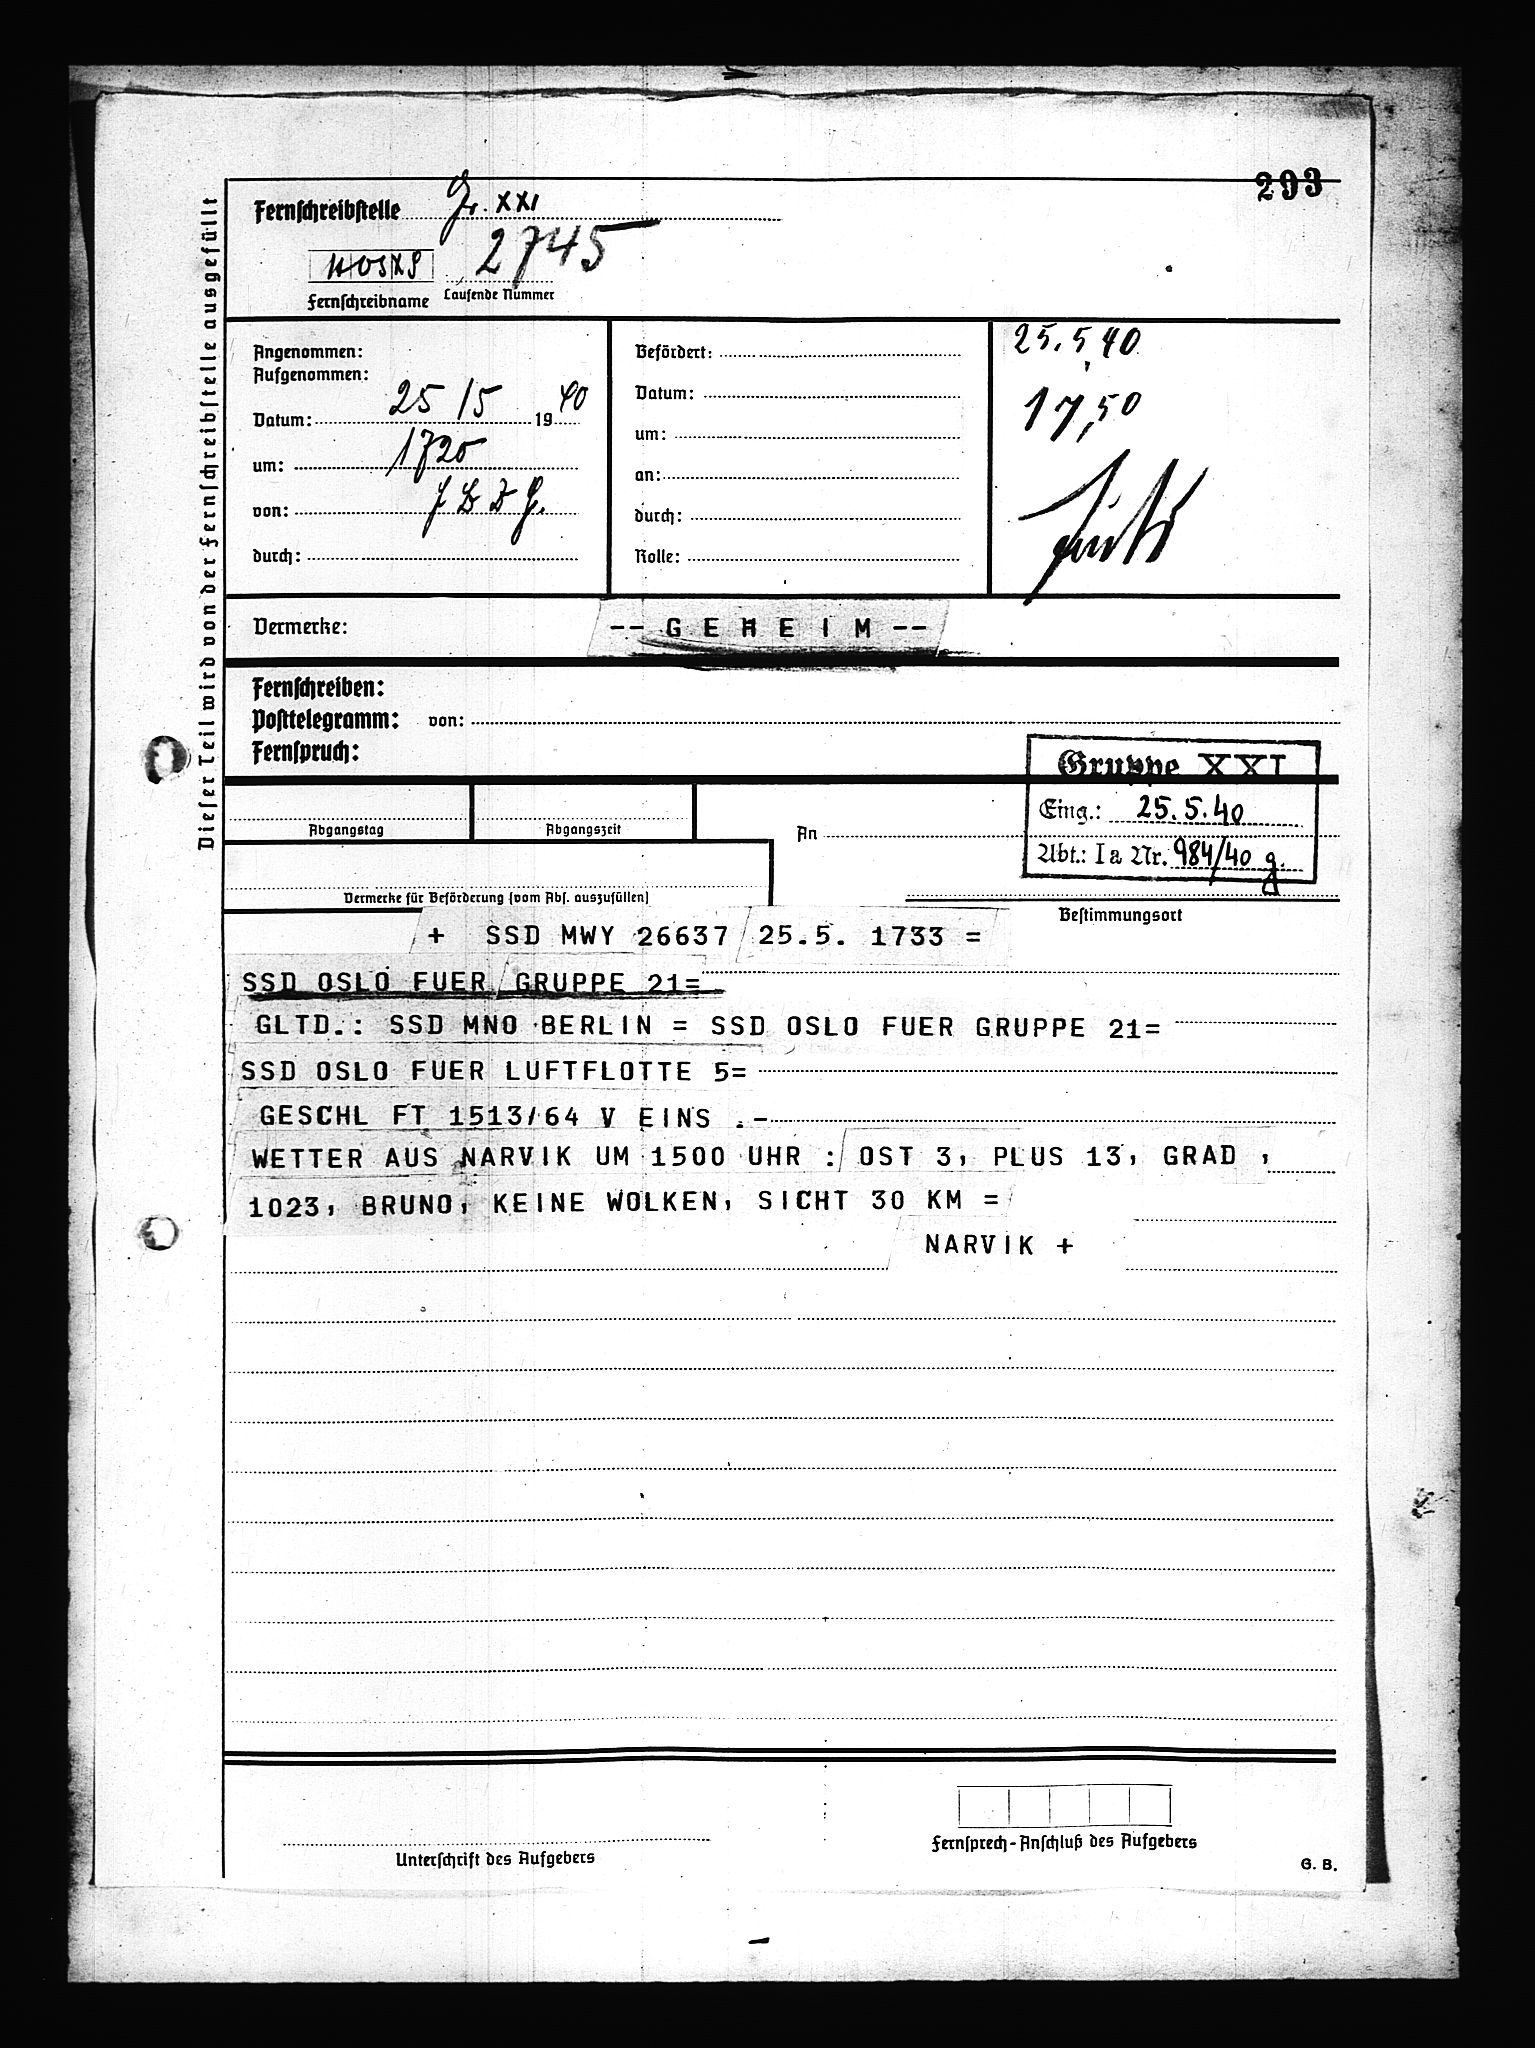 293
Fernschreibstelle Gr. XXI
HOSXS 2745
Fernschreibname Laufende Nummer
Dieser Teil wird von der Fernschreibstelle ausgefüllt
Angenommen:
Aufgenommen:
Datum: 25/5 1940
um: 1720
von:
durch:
Befördert:
Datum:
um:
an:
durch:
Rolle:
25.5.40
17,50
Vermerke: -- G E H E I M --
Fernschreiben:
Posttelegramm: von:
Fernspruch:
Gruppe XXI
Eing.: 25.5.40
Abt.: Ia Nr. 984/40 g.
Abgangstag
Abgangszeit
An
Vermerke für Beförderung (vom Abs. auszufüllen)
Bestimmungsort
+ SSD MWY 26637 25.5. 1733 =
SSD OSLO FUER GRUPPE 21=
GLTD.: SSD MNO BERLIN = SSD OSLO FUER GRUPPE 21=
SSD OSLO FUER LUFTFLOTTE 5=
GESCHL FT 1513/64 V EINS .-
WETTER AUS NARVIK UM 1500 UHR : OST 3, PLUS 13, GRAD ,
1023, BRUNO, KEINE WOLKEN, SICHT 30 KM =
NARVIK +
Unterschrift des Aufgebers
Fernsprech-Anschluß des Aufgebers
G. B.